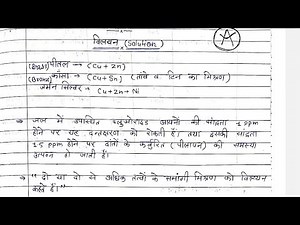 विलयन (Solution)
(Brass) पीतल → (Cu + Zn)
(Bronze) कांसा → (Cu + Sn) (तांबे व टिन का मिश्रण)
जर्मन सिल्वर → Cu + Zn + Ni
→ जल में उपस्थित फ्लुओराइड आयनों की सांद्रता 1 ppm
होने पर यह दन्तक्षरण को रोकती हैं। तथा इसकी सांद्रता
1.5 ppm होने पर दांतो के कर्बुरित (पीलापन) की समस्या
उत्पन्न हो जाती हैं।
→ "दो या दो से अधिक तत्वों के समांगी मिश्रण को विलयन
कहते हैं।"